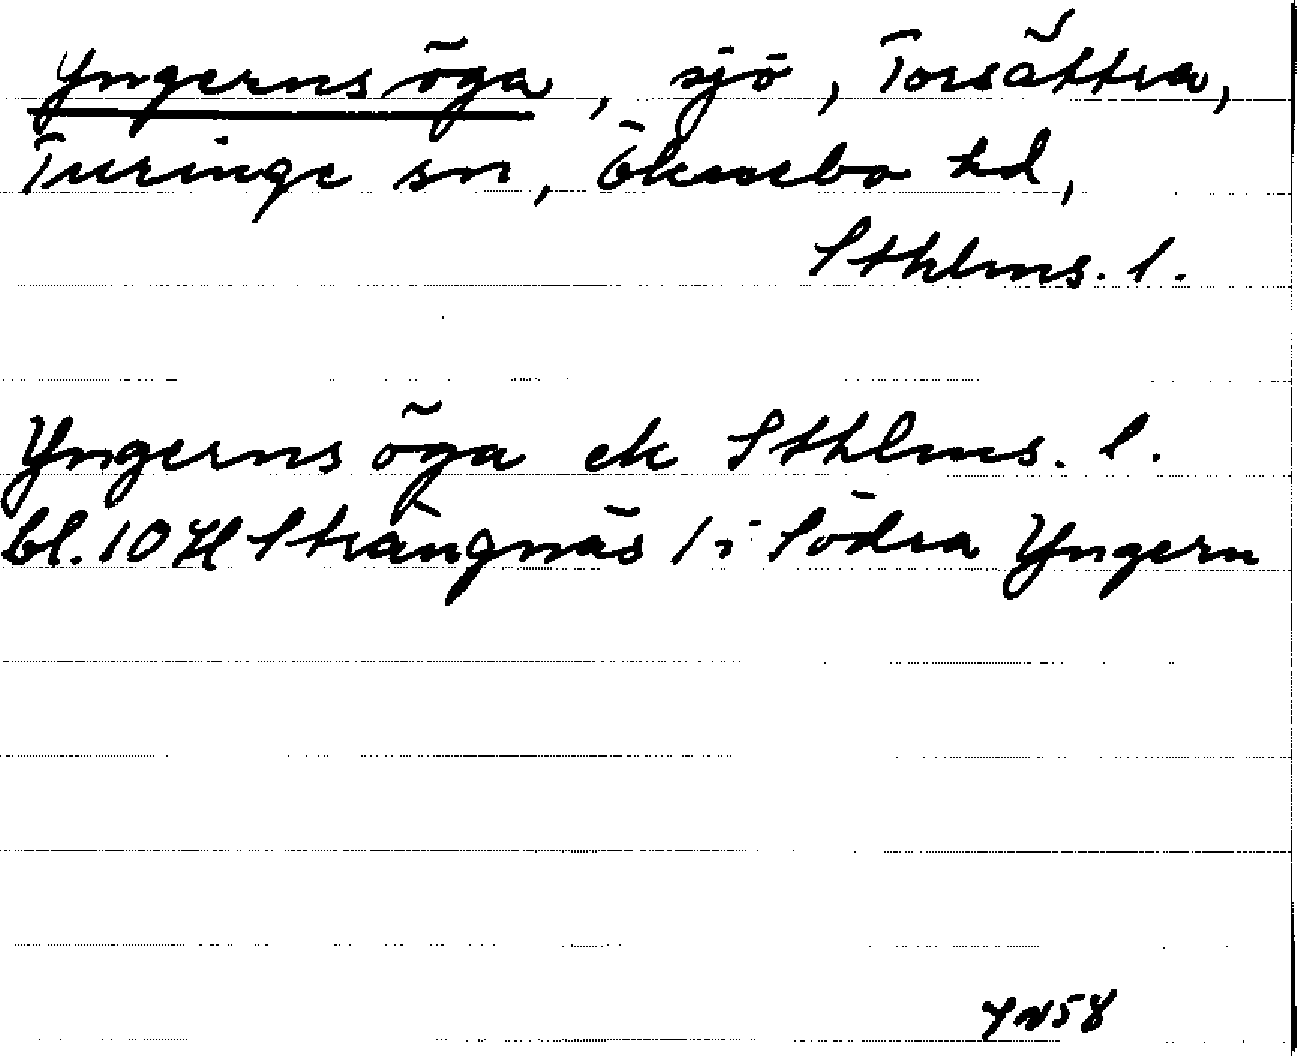 Yngerns öga, sjö, Torsättra,
Turinge sn, Öknebo hd,
Sthlms. l.
Yngerns öga ek Sthlms. l.
bl. 10 H Strängnäs
i Södra Yngern